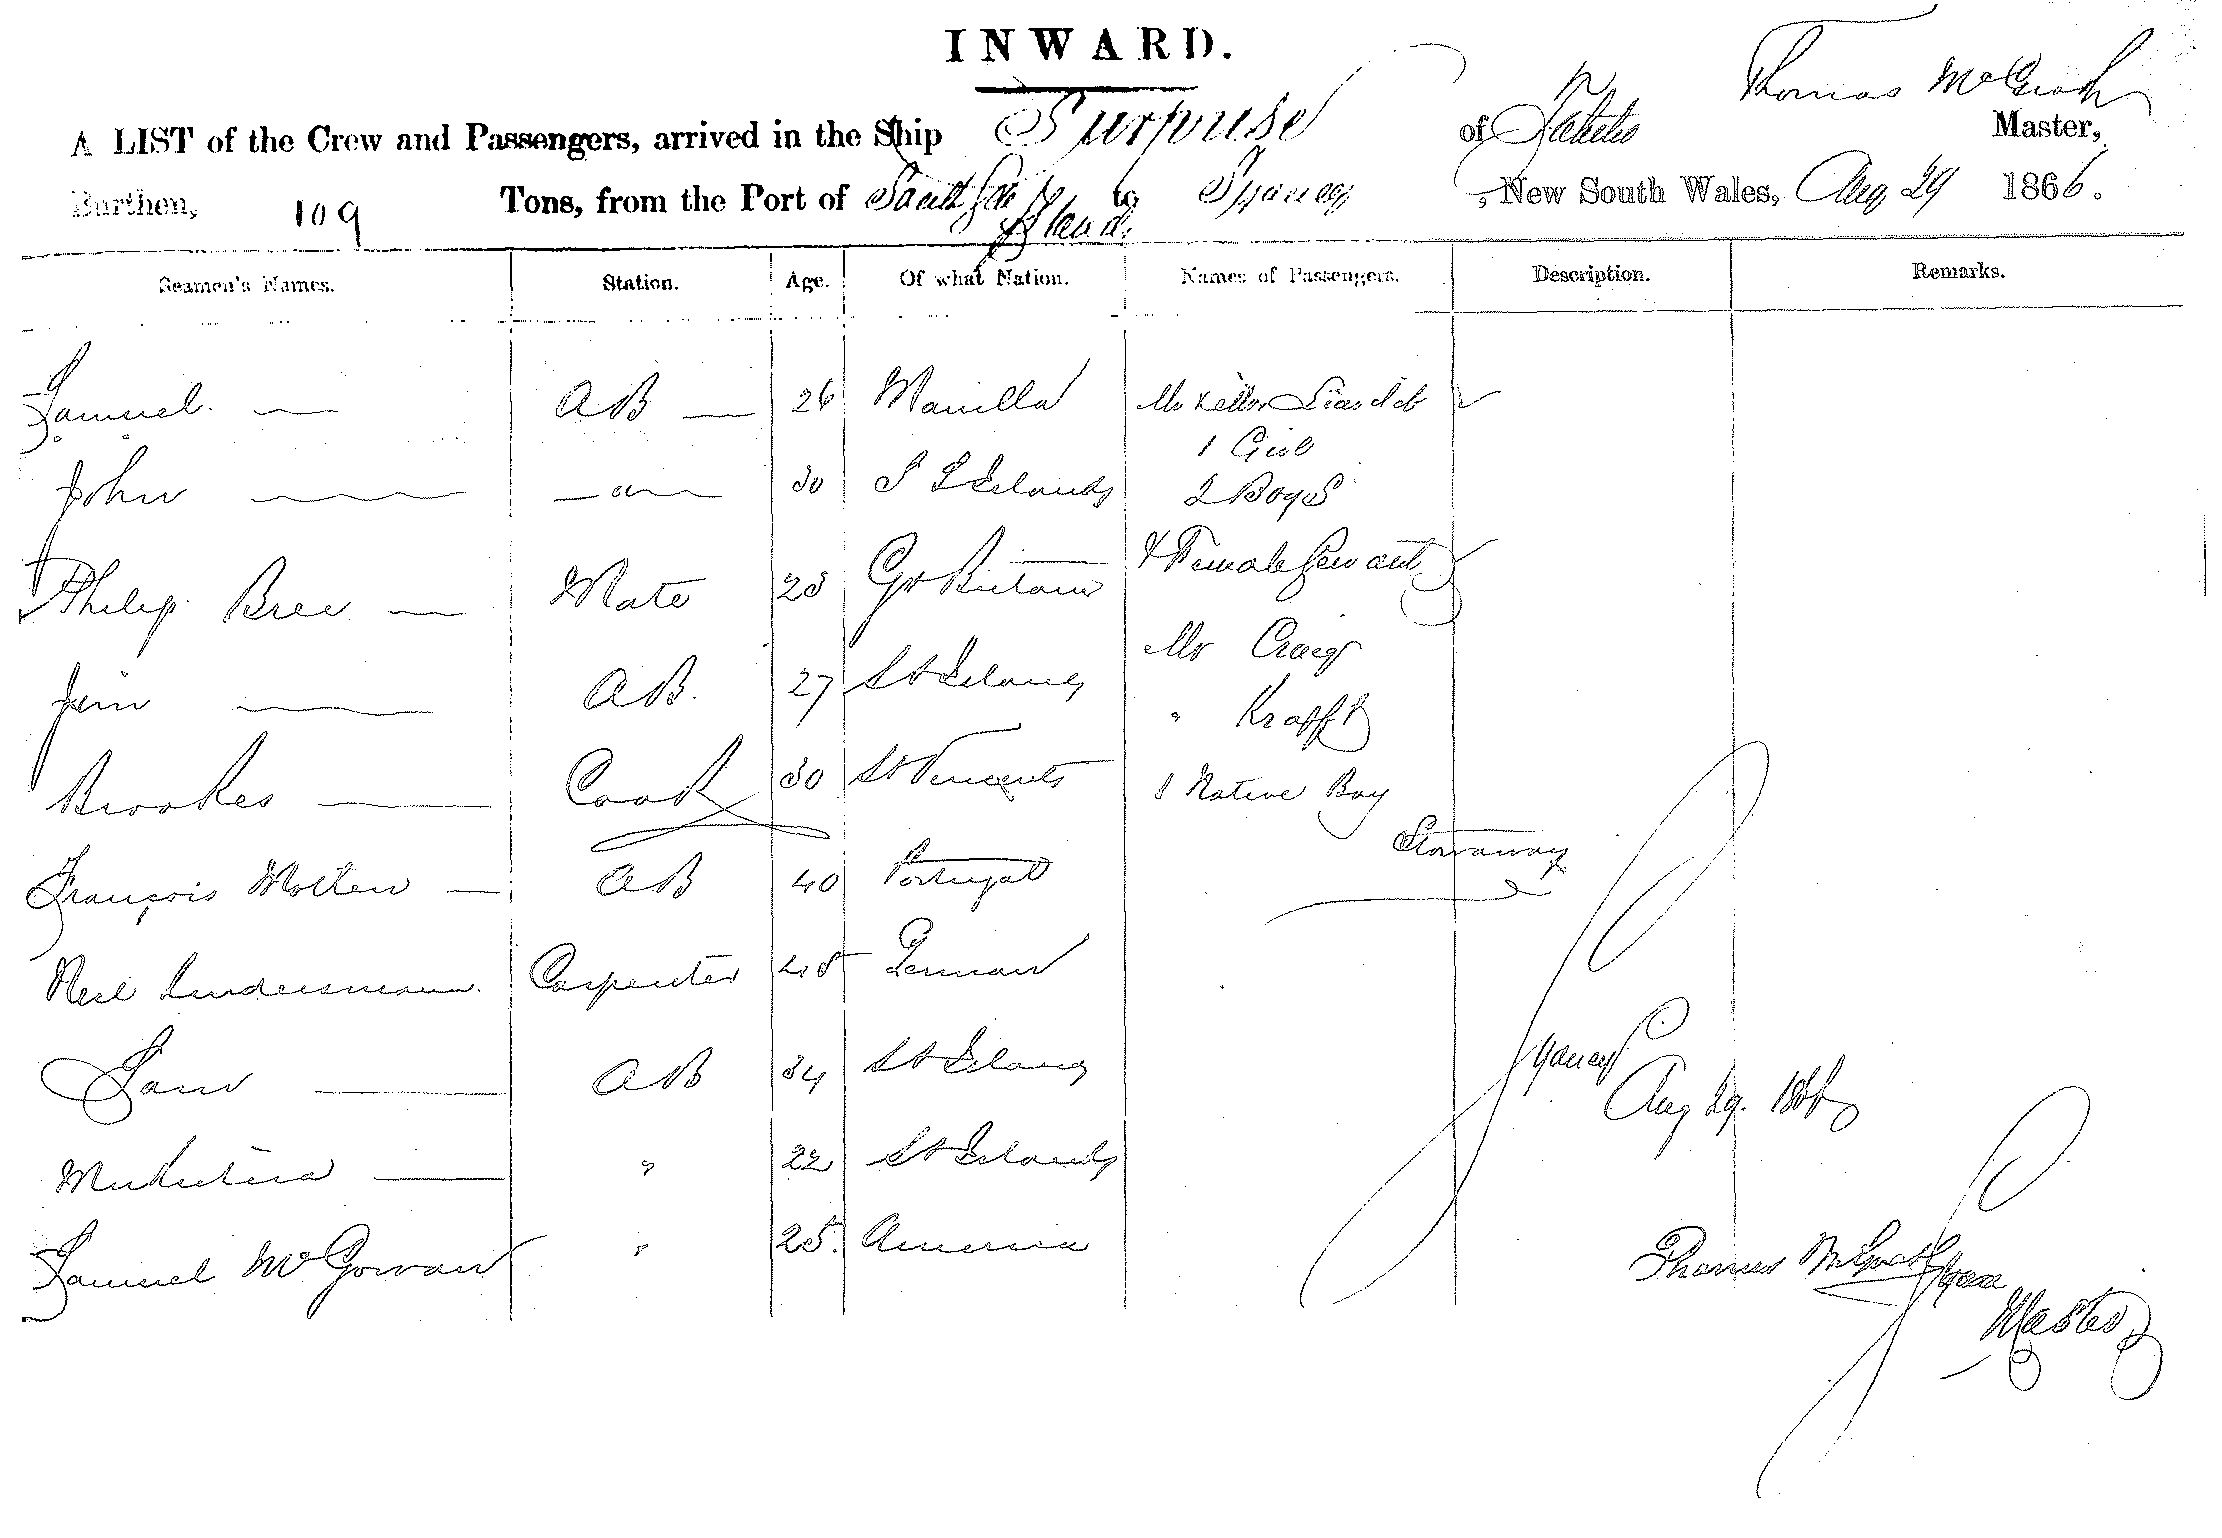 INWARD.
Thomas McGrath
A LIST of the Crew and Passengers, arrived in the Ship Surprise of Master,
Burthen, 109 Tons, from the Port of South Sea Island. to Sydney, New South Wales, Aug 29 1866.
Seamen's Names. Station. Age. Of what Nation. Names of Passengers. Description. Remarks.
Samuel. AB 26 Manilla Mr
1 Girl
John 30 S S Islands 2 Boys
& Female Servant
Philip Bree Mate Gt Britain
Mr Craig
Jim AB. 27 Islands
" Krafft
Brookes Cook 30 St Vincents 1 Native Boy
Stowaway
François Molten AB 40 Portugal
Carpenter German
Sam AB 34
Sydney
Aug 29. 1866
" 22 Islands
Samuel McGowan " 25. America
Thomas McGrath
Master